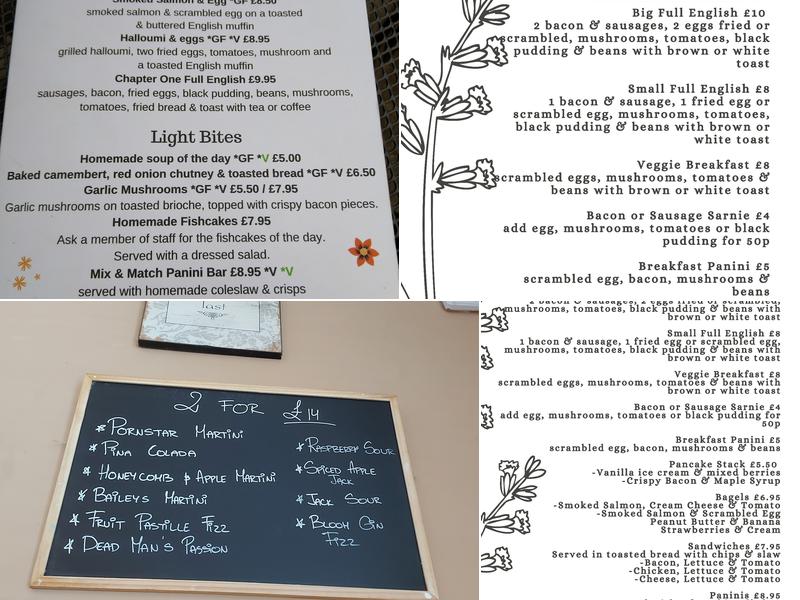 Smoked Salmon & Egg *GF £8.50
smoked salmon & scrambled egg on a toasted
& buttered English muffin
Halloumi & eggs *GF *V £8.95
grilled halloumi, two fried eggs, tomatoes, mushroom and
a toasted English muffin
Chapter One Full English £9.95
sausages, bacon, fried eggs, black pudding, beans, mushrooms,
tomatoes, fried bread & toast with tea or coffee
Light Bites
Homemade soup of the day *GF *V £5.00
Baked camembert, red onion chutney & toasted bread *GF *V £6.50
Garlic Mushrooms *GF *V £5.50 / £7.95
Garlic mushrooms on toasted brioche, topped with crispy bacon pieces.
Homemade Fishcakes £7.95
Ask a member of staff for the fishcakes of the day.
Served with a dressed salad.
Mix & Match Panini Bar £8.95 *V *V
served with homemade coleslaw & crisps
Big Full English £10
2 bacon & sausages, 2 eggs fried or
scrambled, mushrooms, tomatoes, black
pudding & beans with brown or white
toast
Small Full English £8
1 bacon & sausage, 1 fried egg or
scrambled egg, mushrooms, tomatoes,
black pudding & beans with brown or
white toast
Veggie Breakfast £8
scrambled eggs, mushrooms, tomatoes &
beans with brown or white toast
Bacon or Sausage Sarnie £4
add egg, mushrooms, tomatoes or black
pudding for 50p
Breakfast Panini £5
scrambled egg, bacon, mushrooms &
beans
last
2 FOR £14
* PORNSTAR MARTINI
* PINA COLADA
* HONEYCOMB & APPLE MARTINI
* BAILEYS MARTINI
* FRUIT PASTILLE FIZZ
* DEAD MAN'S PASSION
* RASPBERRY SOUR
* SPICED APPLE
JACK
* JACK SOUR
* BLOOM GIN
FIZZ
2 bacon & sausages, 2 eggs fried or scrambled,
mushrooms, tomatoes, black pudding & beans with
brown or white toast
Small Full English £8
1 bacon & sausage, 1 fried egg or scrambled egg,
mushrooms, tomatoes, black pudding & beans with
brown or white toast
Veggie Breakfast £8
scrambled eggs, mushrooms, tomatoes & beans with
brown or white toast
Bacon or Sausage Sarnie £4
add egg, mushrooms, tomatoes or black pudding for
50p
Breakfast Panini £5
scrambled egg, bacon, mushrooms & beans
Pancake Stack £5.50
-Vanilla ice cream & mixed berries
-Crispy Bacon & Maple Syrup
Bagels £6.95
-Smoked Salmon, Cream Cheese & Tomato
-Smoked Salmon & Scrambled Egg
Peanut Butter & Banana
Strawberries & Cream
Sandwiches £7.95
Served in toasted bread with chips & slaw
-Bacon, Lettuce & Tomato
-Chicken, Lettuce & Tomato
-Cheese, Lettuce & Tomato
Paninis £8.95